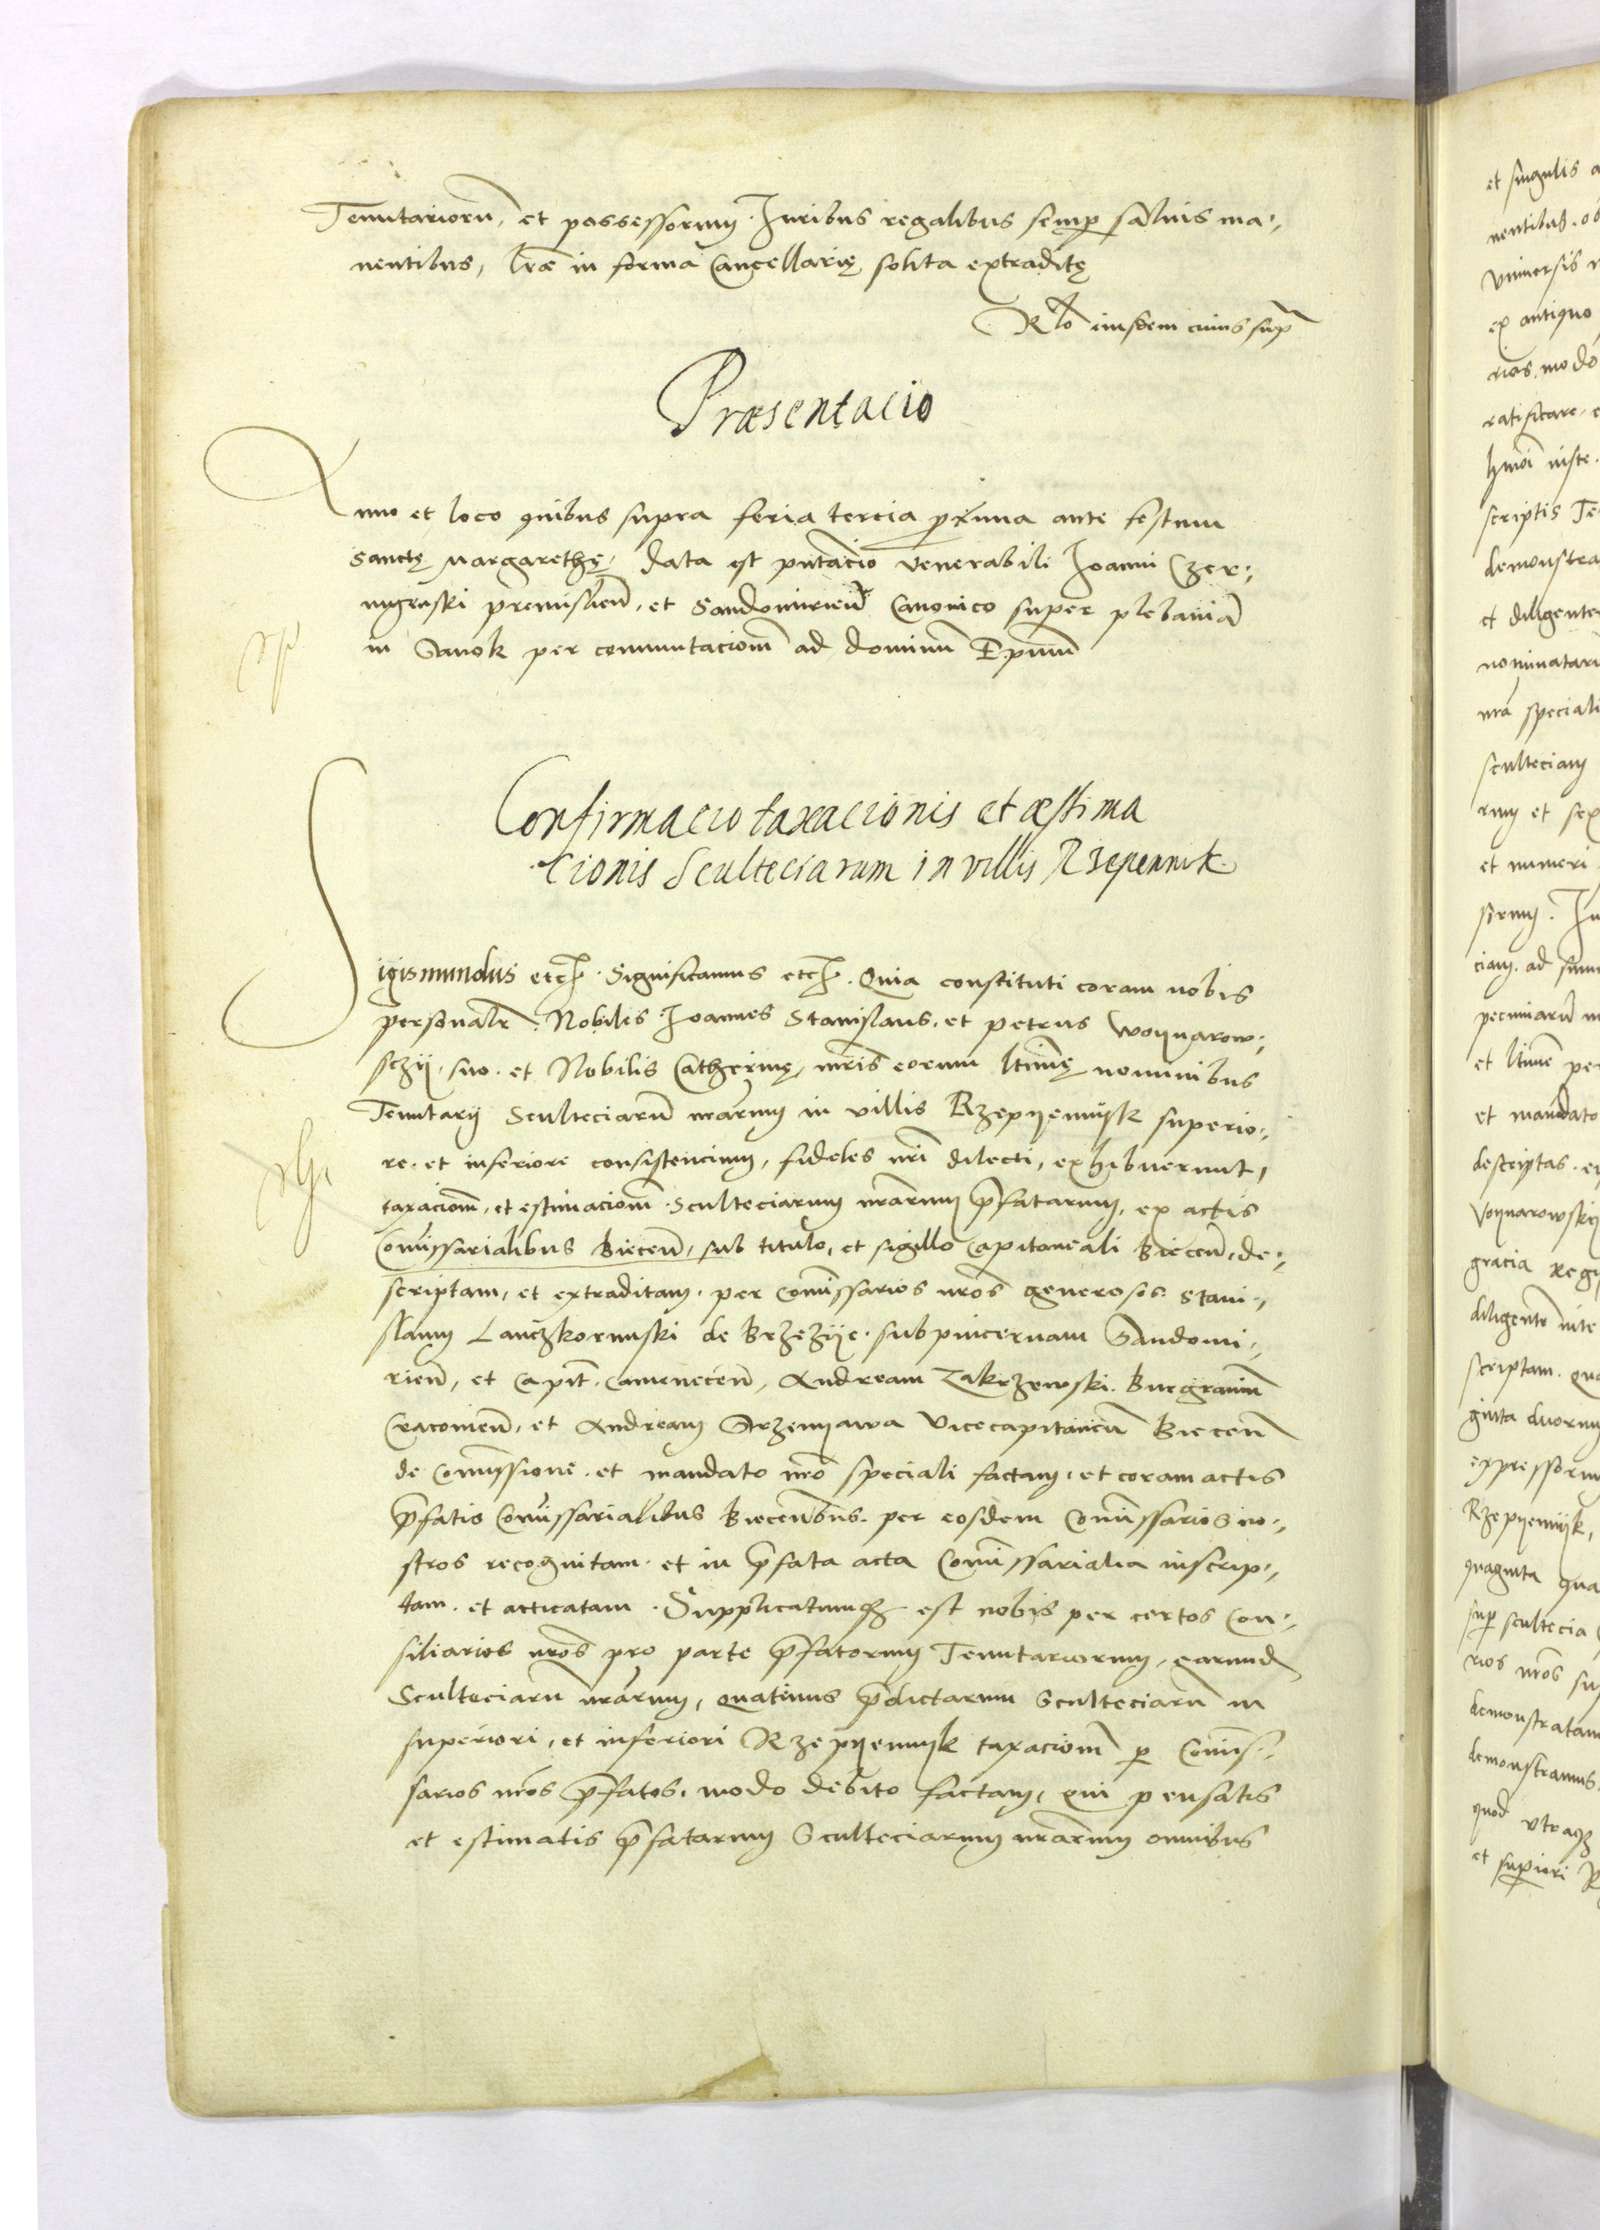 Tenutariorū, et possessorum. Iuribus regalibus semp salvis ma-
nentibus, lr̃æ in forma Cancellarię solita extraditę
Rlo eiusdem cuius sup
Præsentacio
Anno et loco quibus supra feria tercia proxima ante festum
Sanctę Margarethę, data est pñtacio venerabili Ioanni Czer-
premislieñ, et Sandomirieñ Canonico super plebaniā
in Sanok per commutacionē ad dominū Epūm
Confirmacio taxacionis et æstima
cionis Scultetiarum in villis Rzepennik
Sigismundus etc. Significamus etc. Quia constituti coram nobis
personalr̃ Nobiles Ioannes Stanislaus, et petrus Woynarow-
sczij, suo et Nobilis Catherinę, mr̃is eorum ltimę nominibus
Tenutarij Sculteciarū nr̃arum in villis Rzepyennijk superio-
re et inferiore consistencium, fideles nr̃i dilecti, exhibuerunt,
taxacionē, et estimacionē Scultetiarum nr̃arum p̃fatarum, ex actis
Com̃issarialibus Bieceñ, sub titulo, et sigillo Capitaneali Bieceñ, de-
scriptam, et extraditam per Com̃issarios nr̃os generosos Stani-
slaum Lanczkorunski de Brzezije subpincernam Sandomi-
rieñ, et Capit. Cameneceñ, Andream Zakrzewski Burgraviū
Cracovieñ, et Andream Strzemyawa Vicecapitaneū Bieceñ
de Com̃issione et mandato nr̃o speciali factam, et coram actis
p̃fatis Com̃issarialibus Biecens̃bus per eosdem Com̃issarios no-
stros recognitam et in p̃fata acta Com̃issarialia inscrip-
tam et acticatam. Supplicatumq; est nobis per certos Con-
siliarios nr̃os pro parte p̃fatorum Tenutariorum, earund
Scultetiarū nr̃arum, quatinus p̃dictarum Scultetiarū in
superiori, et inferiori Rzepyennyk taxacionē p Com̃is-
sarios nr̃os p̃fatos, modo debito factam, qui pensatis
et estimatis p̃fatarum Scultetiarum nr̃arum omnibus
et singulis
nentibus
Universis
ex antiquo
modo
ratificare
scriptis
demonstra
et diligenter
nominatar
nr̃a speciali
scultetiam
rum et sex
et numeri
ad
pecuniarū
et ltime per
et mandato
descriptas
Voynarowskij
gracia Regi
scriptam
ginta duorum
expressorum
Rzepyennijk,
sup scultetia
rios nr̃os
demonstratam
demonstramus
quod utraq;
et superiori